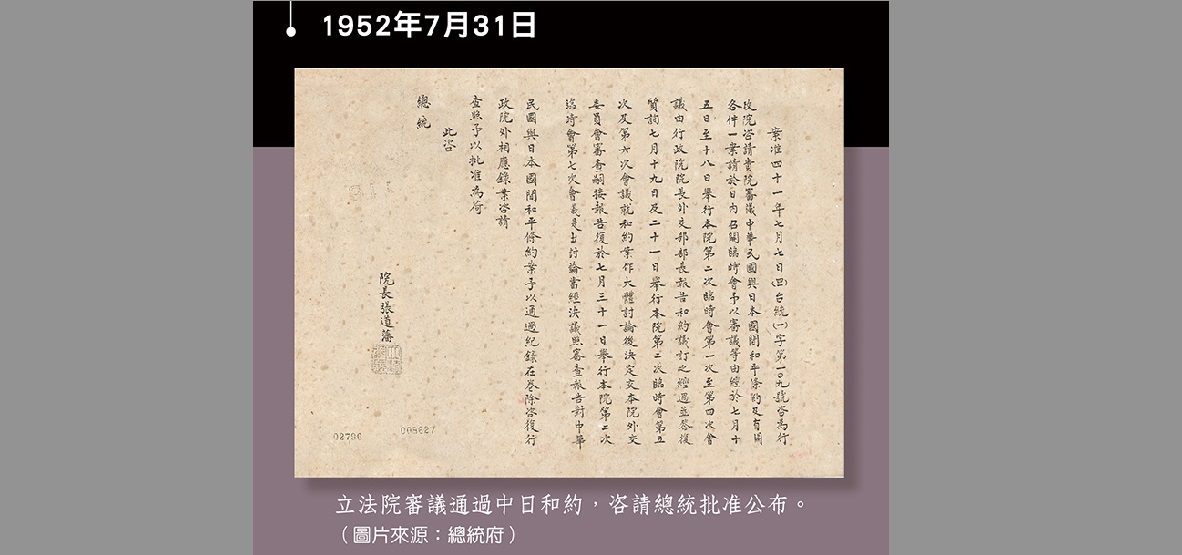 1952年7月31日
案准四十一年七月七日(四)台統(一)字第一〇九號咨為行
政院咨請貴院審議中華民國與日本國間和平條約及有關
各件一案請於日內召開臨時會予以審議等由經於七月十
五日至十八日舉行本院第二次臨時會第一次至第四次會
議由行政院院長外交部部長報告和約議訂之經過並答復
質詢七月十九日及二十一日舉行本院第二次臨時會第五
次及第六次會議就和約案作大體討論後決定交本院外交
委員會審查嗣接報告復於七月三十一日舉行本院第二次
臨時會第七次會議提出討論當經決議照審查報告對中華
民國與日本國間和平條約案予以通過紀錄在卷除咨復行
政院外相應錄案咨請
查照予以批准為荷
此咨
總統
院長張道藩
008627
02796
立法院審議通過中日和約，咨請總統批准公布。
（圖片來源：總統府）